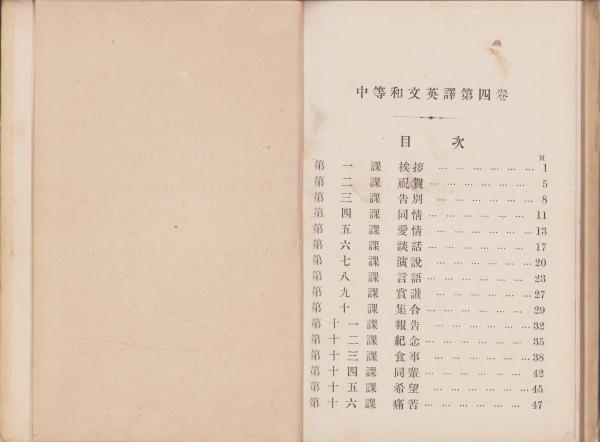 中等和文英譯第四卷
目次
頁
第一課 挨拶 … … … … … 1
第二課 祝賀 … … … … … 5
第三課 告別 … … … … … 8
第四課 同情 … … … … … 11
第五課 愛情 … … … … … 13
第六課 談話 … … … … … 17
第七課 演説 … … … … … 20
第八課 言語 … … … … … 23
第九課 賞讃 … … … … … 27
第十課 集合 … … … … … 29
第十一課 報告 … … … … … 32
第十二課 紀念 … … … … … 35
第十三課 食事 … … … … … 38
第十四課 同輩 … … … … … 42
第十五課 希望 … … … … … 45
第十六課 痛苦 … … … … … 47